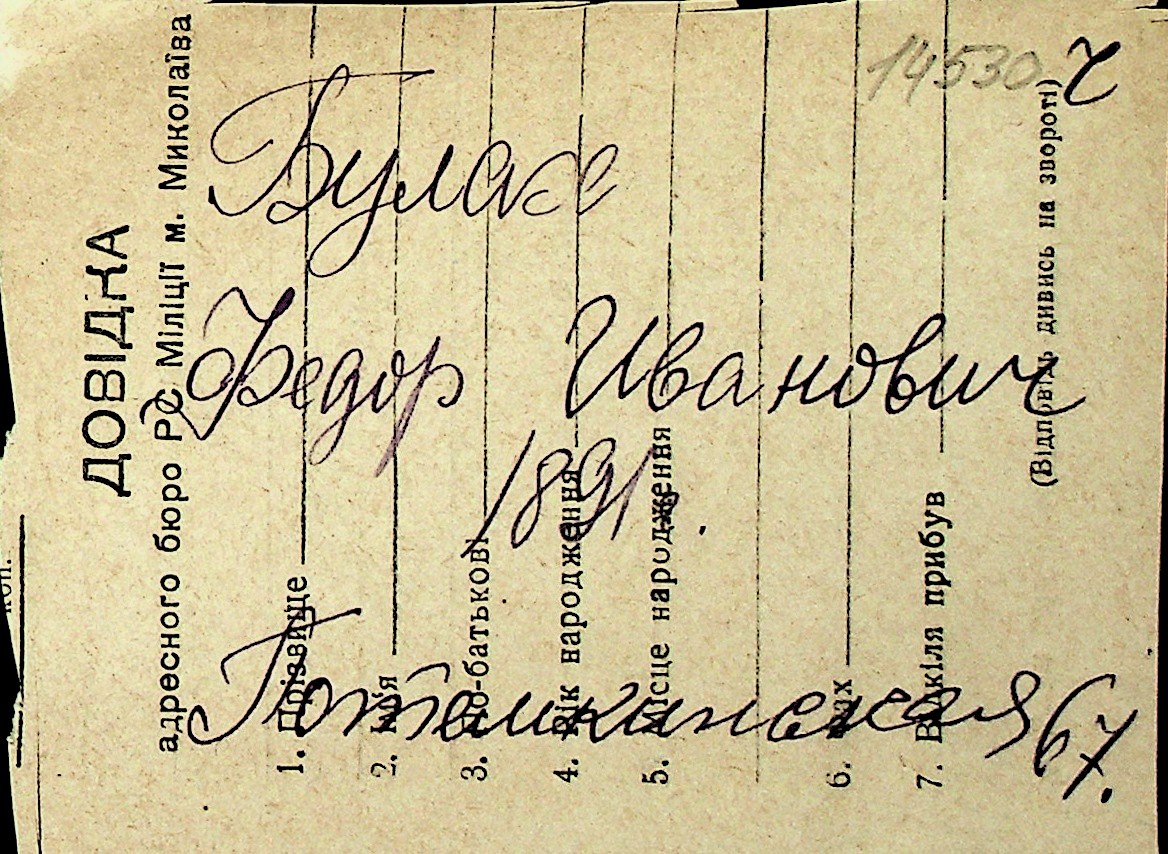 14530
ч
Булах
Федор Иванович
1891.
Потемкинская 67.
ДОВІДКА
адресного бюро РС Міліції м. Миколаїва
1. Прізвище
2. Ім'я
3. По-батькові
4. Рік народження
5. Місце народження
6.
7. Відкіля прибув
(Відповідь дивись на звороті)
коп.